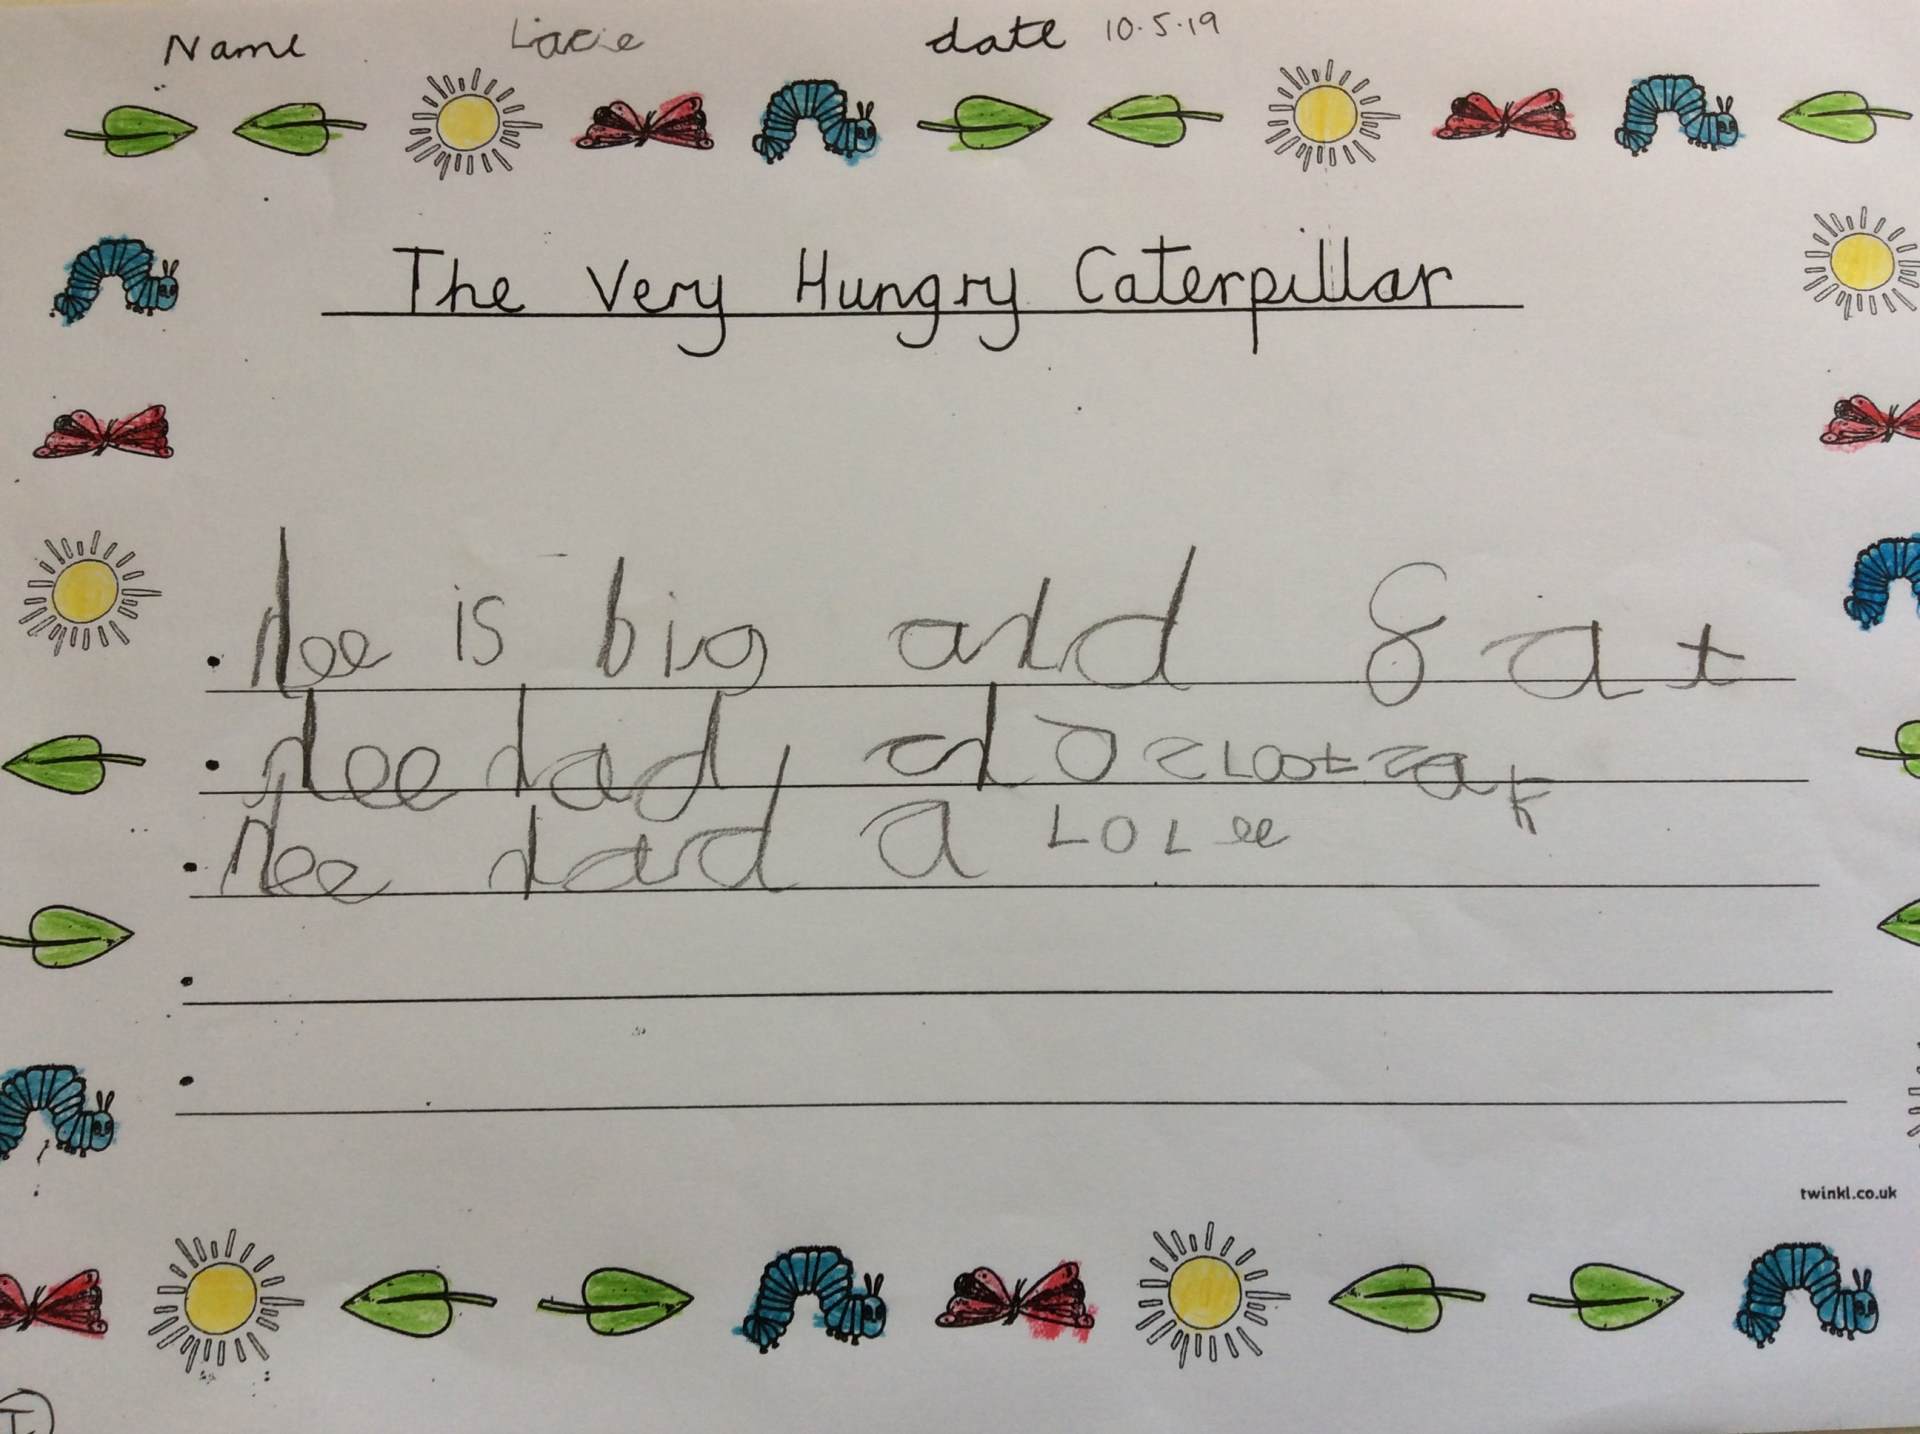 Name Lacie date 10.5.19
The Very Hungry Caterpillar
. hee is big and fat
. hee had
. hee had a LOLee
twinkl.co.uk
I